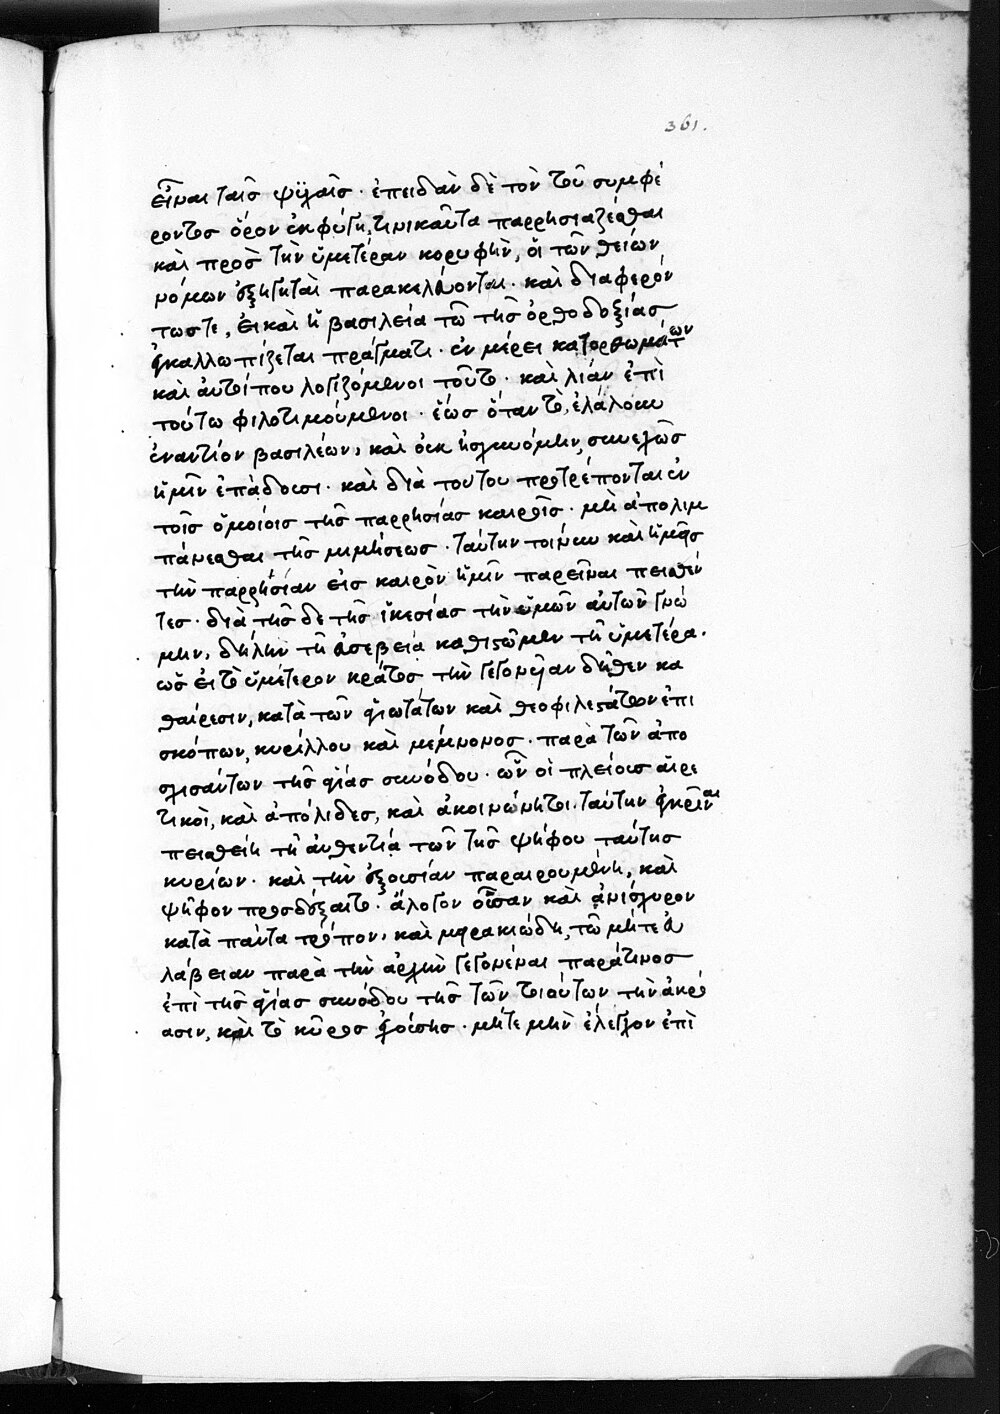 361.
εἶναι ταῖς ψυχαῖς · ἐπειδὰν δὲ τὸν τοῦ συμφέ
ροντος ὅρον ἐκφύγῃ, τηνικαῦτα παρρησιαζέσθαι
καὶ πρὸς τὴν ὑμετέραν κορυφὴν, οἱ τῶν θείων
νόμων ἐξηγηταὶ παρακελεύονται · καὶ διαφερόν
τως τε, εἰ καὶ ἡ βασιλεία τῶ τῆς ὀρθοδοξίας
ἐγκαλλωπίζεται πράγματι · ἐν μέρει κατορθωμάτων
καὶ αὐτοί που λογιζόμενοι τοῦτο · καὶ λίαν ἐπὶ
τούτω φιλοτιμούμενοι · ἕως ὅταν τὸ, ἐλάλουν
ἐναντίον βασιλέων, καὶ οὐκ ἠσχυνόμην, συνεχῶς
ἡμῖν ἐπάδουσι · καὶ διὰ τούτου προτρέπονται ἐν
τοῖς ὁμοίοις τῆς παρρησίας καιροῖς · μὴ ἀπολιμ
πάνεσθαι τῆς μιμήσεως · ταύτην τοίνυν καὶ ἡμεῖς
τὴν παρρησίαν εἰς καιρὸν ἡμῖν παρεῖναι πεισθέν
τες · διὰ τῆς δε τῆς ἱκεσίας τὴν ἡμῶν αὐτῶν γνώ
μην, δήλην τῆ εὐσεβεία καθιστῶμεν τῆ ὑμετέρα ·
ὡς εἰ τὸ ὑμέτερον κράτος τὴν γεγονυῖαν δῆθεν κα
θαίρεσιν, κατὰ τῶν ἁγιωτάτων καὶ θεοφιλεστάτων ἐπι
σκόπων, κυρίλλου καὶ μέμνονος · παρὰ τῶν ἀπο
σχισάντων τῆς ἁγίας συνόδου · ὧν οἱ πλείους αἱρε
τικοὶ, καὶ ἀπόλιδες, καὶ ἀκοινώνητοι · ταύτην ἐγκρῖναι
πεισθείη τῆ αὐθεντία τῶν τῆς ψήφου ταύτης
κυρίων · καὶ τὴν ἐξουσίαν παραιρουμένη, καὶ
ψῆφον προσδέξαιτο · ἄλογον οὖσαν καὶ ἀνίσχυρον
κατὰ πάντα τρόπον, καὶ μειρακιώδη, τῶ μήτε εὐ
λάβειαν παρὰ τὴν ἀρχὴν γεγονέναι παρά τινος
ἐπὶ τῆς ἁγίας συνόδου τῆς τῶν τοιούτων τὴν ἀκρό
ασιν, καὶ τὸ κῦρος ἐχούσης · μήτε μὴν ἔλεγχον ἐπὶ